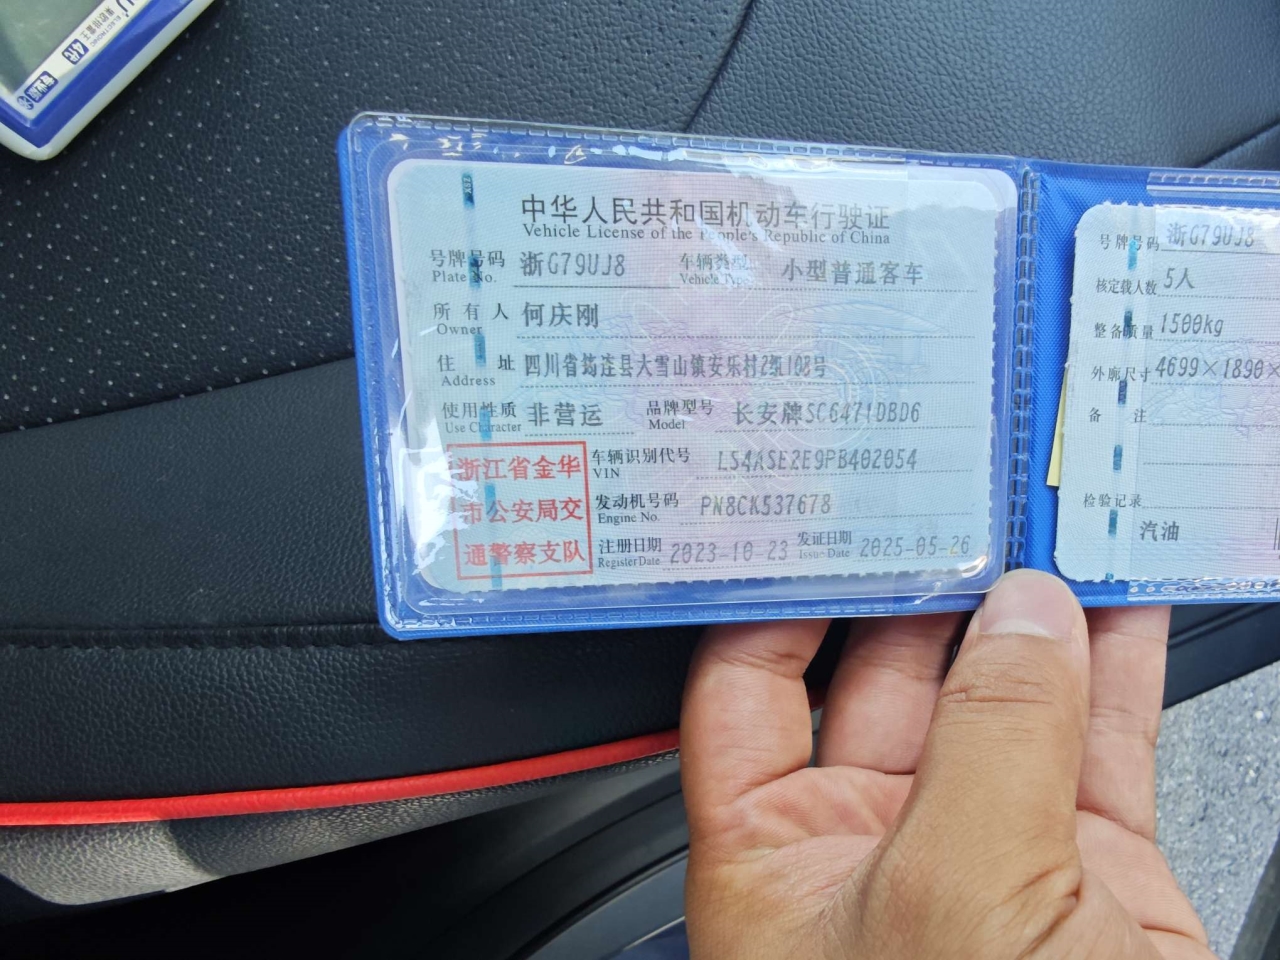 中华人民共和国机动车行驶证
Vehicle License of the People's Republic of China
号牌号码 浙G79UJ8 车辆类型 小型普通客车
Plate No. Vehicle Type
所有人 何庆刚
Owner
住址 四川省筠连县大雪山镇安乐村2组108号
Address
使用性质 非营运 品牌型号 长安牌SC6471DBD6
Use Character Model
浙江省金华市公安局交通警察支队
车辆识别代号 LS4ASE2E9PB402054
VIN
发动机号码 PN8CK537678
Engine No.
注册日期 2023-10-23 发证日期 2025-05-26
Register Date Issue Date
号牌号码 浙G79UJ8
核定载人数 5人
整备质量 1500kg
外廓尺寸 4699×1890×
备注
检验记录
汽油